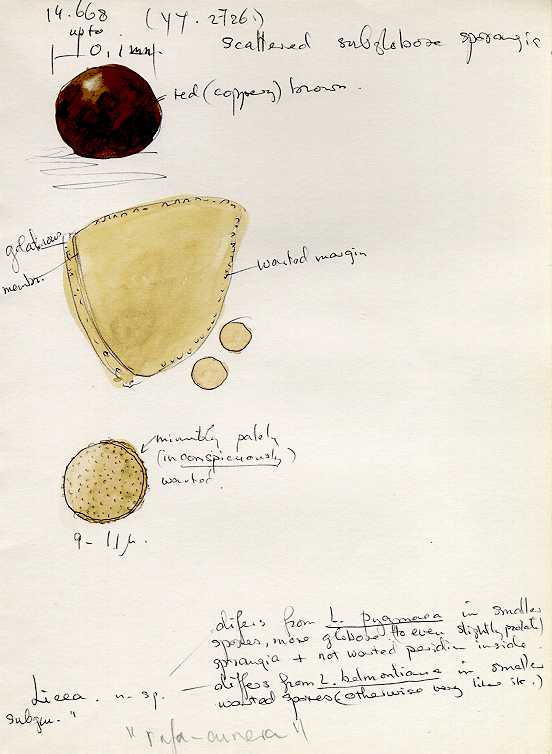 14.668 (YY. 27261)
up to
0,1 mm.
scattered subglobose sporangia
red (coppery) brown.
gelatinous
membr.
warted margin
minutely palely
(inconspicuously)
warted.
9-11 µ.
differs from L. pygmaea in smaller
spores, more globose (to even slightly prolate)
sporangia + not warted peridium inside.
Licea. n. sp. — differs from L. belmontiana in smaller
subgen. "
warted spores (otherwise very like it.)